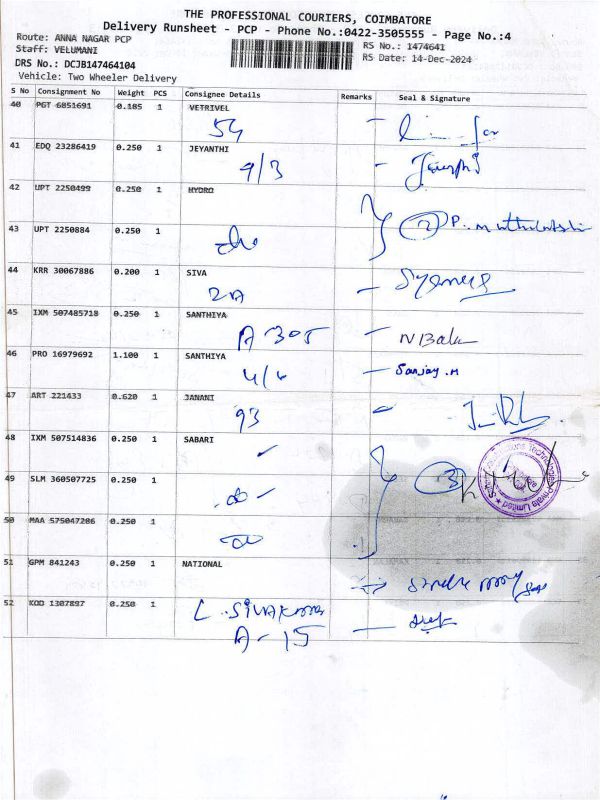 THE PROFESSIONAL COURIERS, COIMBATORE
Delivery Runsheet - PCP - Phone No.:0422-3505555 - Page No.:4
Route: ANNA NAGAR PCP
RS No.: 1474641
Staff: VELUMANI
RS Date: 14-Dec-2024
DRS No.: DCJB147464104
Vehicle: Two Wheeler Delivery
S No Consignment No Weight PCS Consignee Details Remarks Seal & Signature
40 PGT 6851691 0.185 1 VETRIVEL
54
41 EDQ 23286419 0.250 1 JEYANTHI
9/3
42 UPT 2250499 0.250 1 HYDRO
43 UPT 2250884 0.250 1
2
44 KRR 30067886 0.200 1 SIVA
2A
45 IXM 507485718 0.250 1 SANTHIYA
A 305 N Bala
46 PRO 16979692 1.100 1 SANTHIYA
4/6 Sanjay.M
47 ART 221433 0.620 1 JANANI
93
48 IXM 507514836 0.250 1 SABARI
3
49 SLM 360507725 0.250 1
50 MAA 575047206 0.250 1
51 GPM 841243 0.250 1 NATIONAL
52 KOD 1307897 0.250 1
A-15